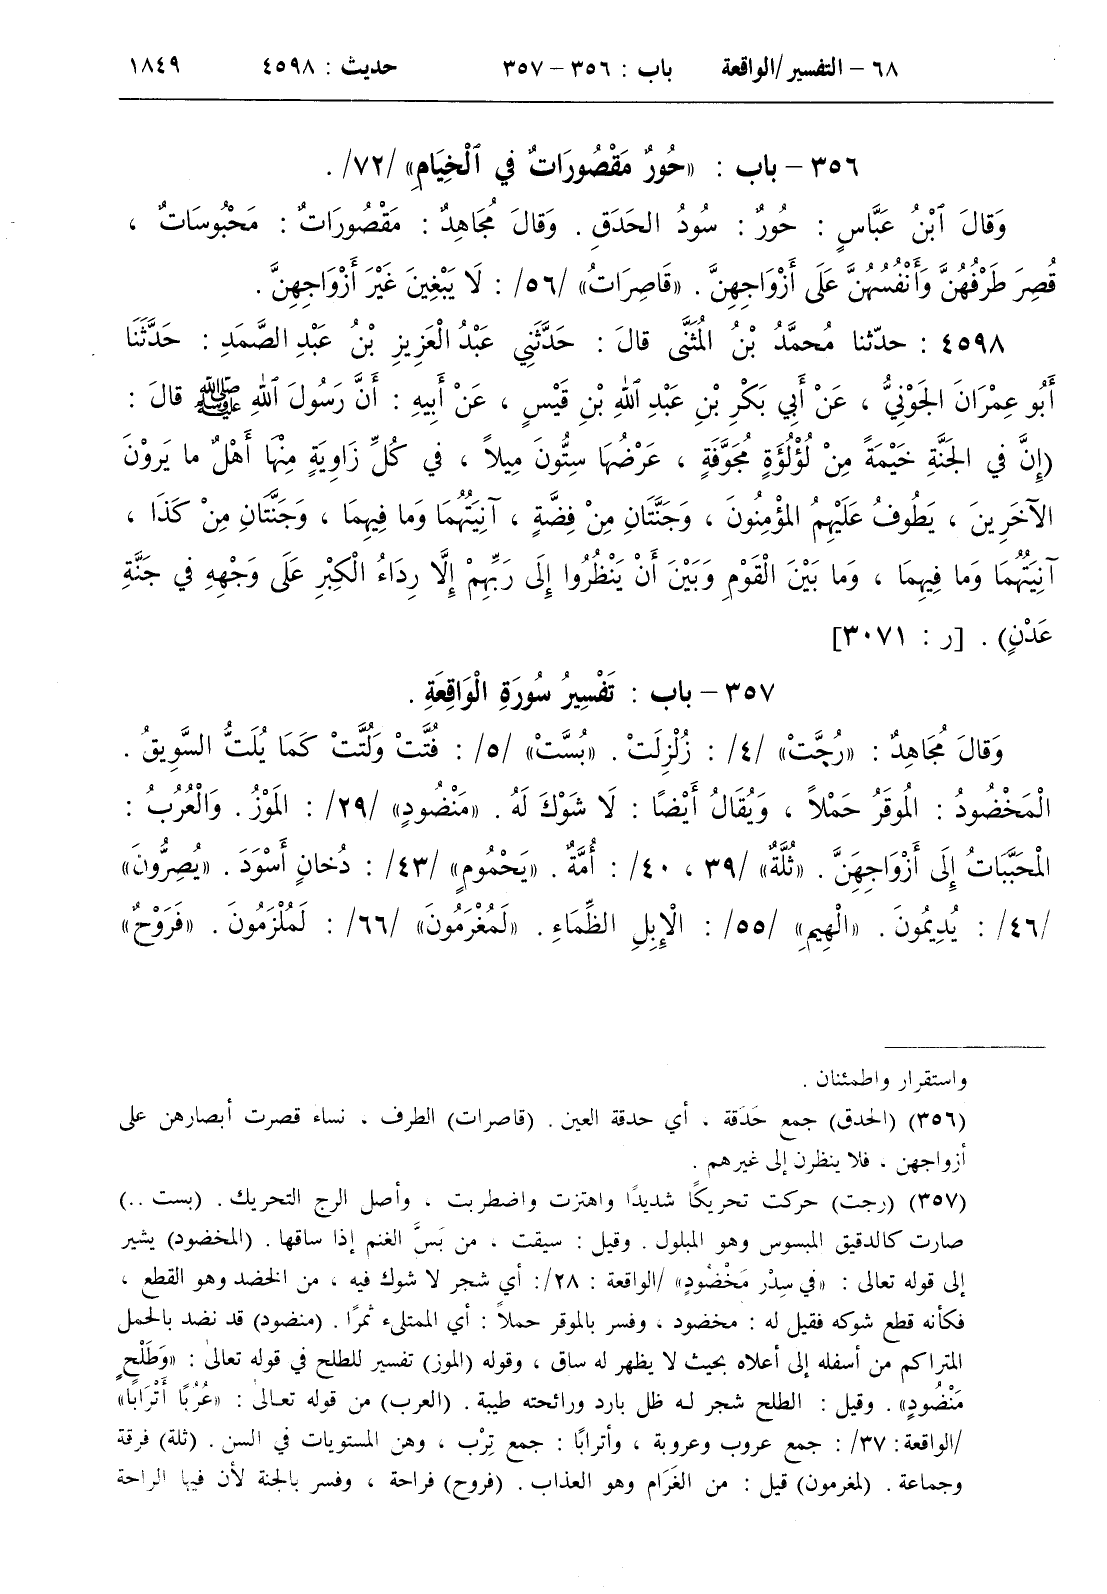 ٦٨ – التفسير/الواقعة باب : ٣٥٦ – ٣٥٧ حديث : ٤٥٩٨ ١٨٤٩
٣٥٦ – باب : «حُورٌ مَقْصُورَاتٌ في ٱلْخِيَامِ» /٧٢/ .
وَقالَ ٱبْنُ عَبَّاسٍ : حُورٌ : سُودُ الحَدَقِ . وَقالَ مُجَاهِدٌ : مَقْصُورَاتٌ : مَحْبُوسَاتٌ ،
قُصِرَ طَرْفُهُنَّ وَأَنْفُسُهُنَّ عَلَى أَزْوَاجِهِنَّ . «قَاصِرَاتُ» /٥٦/ : لَا يَبْغِينَ غَيْرَ أَزْوَاجِهِنَّ .
٤٥٩٨ : حدّثنا مُحمَّدُ بْنُ المُثَنَّى قالَ : حَدَّثَنِي عَبْدُ الْعَزِيزِ بْنُ عَبْدِ الصَّمَدِ : حَدَّثَنَا
أَبُو عِمْرَانَ الجَوْنِيُّ ، عَنْ أَبِي بَكْرِ بْنِ عَبْدِ ٱللهِ بْنِ قَيْسٍ ، عَنْ أَبِيهِ : أَنَّ رَسُولَ ٱللهِ ﷺ قالَ :
(إِنَّ في الجَنَّةِ خَيْمَةً مِنْ لُؤْلُؤَةٍ مُجَوَّفَةٍ ، عَرْضُهَا سِتُّونَ مِيلاً ، في كُلِّ زَاوِيَةٍ مِنْهَا أَهْلٌ ما يَرَوْنَ
الآخَرِينَ ، يَطُوفُ عَلَيْهِمُ المُؤْمِنُونَ ، وَجَنَّتَانِ مِنْ فِضَّةٍ ، آنِيَتُهُمَا وَما فِيهِمَا ، وَجَنَّتَانِ مِنْ كَذَا ،
آنِيَتُهُمَا وَما فِيهِمَا ، وَما بَيْنَ الْقَوْمِ وَبَيْنَ أَنْ يَنْظُرُوا إِلَى رَبِّهِمْ إِلَّا رِدَاءُ الْكِبْرِ عَلَى وَجْهِهِ في جَنَّةِ
عَدْنٍ) . [ر : ٣٠٧١]
٣٥٧ – باب : تَفْسِيرُ سُورَةِ الْوَاقِعَةِ .
وَقالَ مُجَاهِدٌ : «رُجَّتْ» /٤/ : زُلْزِلَتْ . «بُسَّتْ» /٥/ : فُتَّتْ وَلُتَّتْ كَمَا يُلَتُّ السَّوِيقُ .
الْمَخْضُودُ : المُوقَرُ حَمْلاً ، وَيُقَالُ أَيْضًا : لَا شَوْكَ لَهُ . «مَنْضُودٍ» /٢٩/ : المَوْزُ . وَالْعُرُبُ :
المُحَبَّبَاتُ إِلَى أَزْوَاجِهَنَّ . «ثُلَّةٌ» /٣٩ ، ٤٠/ : أُمَّةٌ . «يَحْمُومٍ» /٤٣/ : دُخانٍ أَسْوَدَ . «يُصِرُّونَ»
/٤٦/ : يُدِيمُونَ . «الْهِيمِ» /٥٥/ : الْإِبِلِ الظِّمَاءِ . «لَمُغْرَمُونَ» /٦٦/ : لَمُلْزَمُونَ . «فَرَوْحٌ»
واستقرار واطمئنان .
(٣٥٦) (الحدق) جمع حَدَقة ، أي حدقة العين . (قاصرات) الطرف ، نساء قصرت أبصارهن على
أزواجهن ، فلا ينظرن إلى غيرهم .
(٣٥٧) (رجت) حركت تحريكًا شديدًا واهتزت واضطربت ، وأصل الرج التحريك . (بست ..)
صارت كالدقيق المبسوس وهو المبلول . وقيل : سيقت ، من بَسَّ الغنم إذا ساقها . (المخضود) يشير
إلى قوله تعالى : «في سِدْرٍ مَخْضُودٍ» /الواقعة : ٢٨/: أي شجر لا شوك فيه ، من الخضد وهو القطع ،
فكأنه قطع شوكه فقيل له : مخضود ، وفسر بالموقر حملاً : أي الممتلىء ثمرًا . (منضود) قد نضد بالحمل
المتراكم من أسفله إلى أعلاه بحيث لا يظهر له ساق ، وقوله (الموز) تفسير للطلح في قوله تعالى : «وَطَلْحٍ
مَنْضُودٍ» . وقيل : الطلح شجر له ظل بارد ورائحته طيبة . (العرب) من قوله تعالى : «عُرُبًا أَتْرَابًا»
/الواقعة: ٣٧/ : جمع عروب وعروبة ، وأترابًا : جمع تِرْب ، وهن المستويات في السن . (ثلة) فرقة
وجماعة . (لمغرمون) قيل : من الغَرَام وهو العذاب . (فروح) فراحة ، وفسر بالجنة لأن فيها الراحة